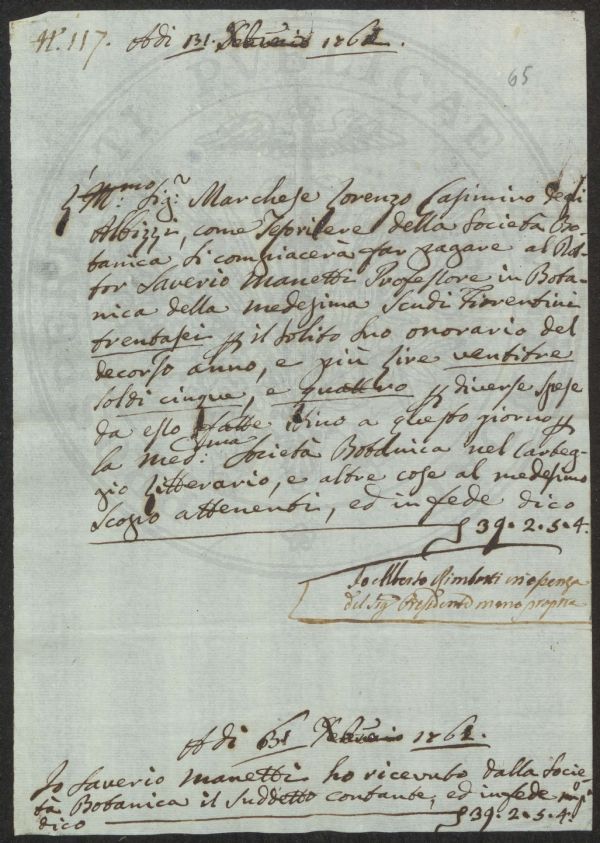 N.° 117. Adi 131. Febrario 1861.
65
Ill.mo Sig.r Marchese Lorenzo Casimiro degli
Albizzi, come Tesoriere della Società Bo-
tanica si compiacerà far pagare al Dot-
tor Saverio Manetti Professore in Bota-
nica della medesima Scudi Fiorentini
trentasei p il solito suo onorario del
decorso anno, e più lire ventitre
soldi cinque, e quattro p diverse spese
da esso fatte sino a questo giorno p
la med:sima Società Botanica nel Carteg-
gio Litterario, e altre cose al medesimo
Scopo attenenti, ed in fede dico
39. 2. 5. 4.
Io Alberto Rimbotti in assenza
del Sig.r Presidente mano propria
Adi 1861.
Io Saverio Manetti ho ricevuto dalla Socie-
tà Botanica il suddetto contante, ed in fede mp
dico 39. 2. 5. 4.